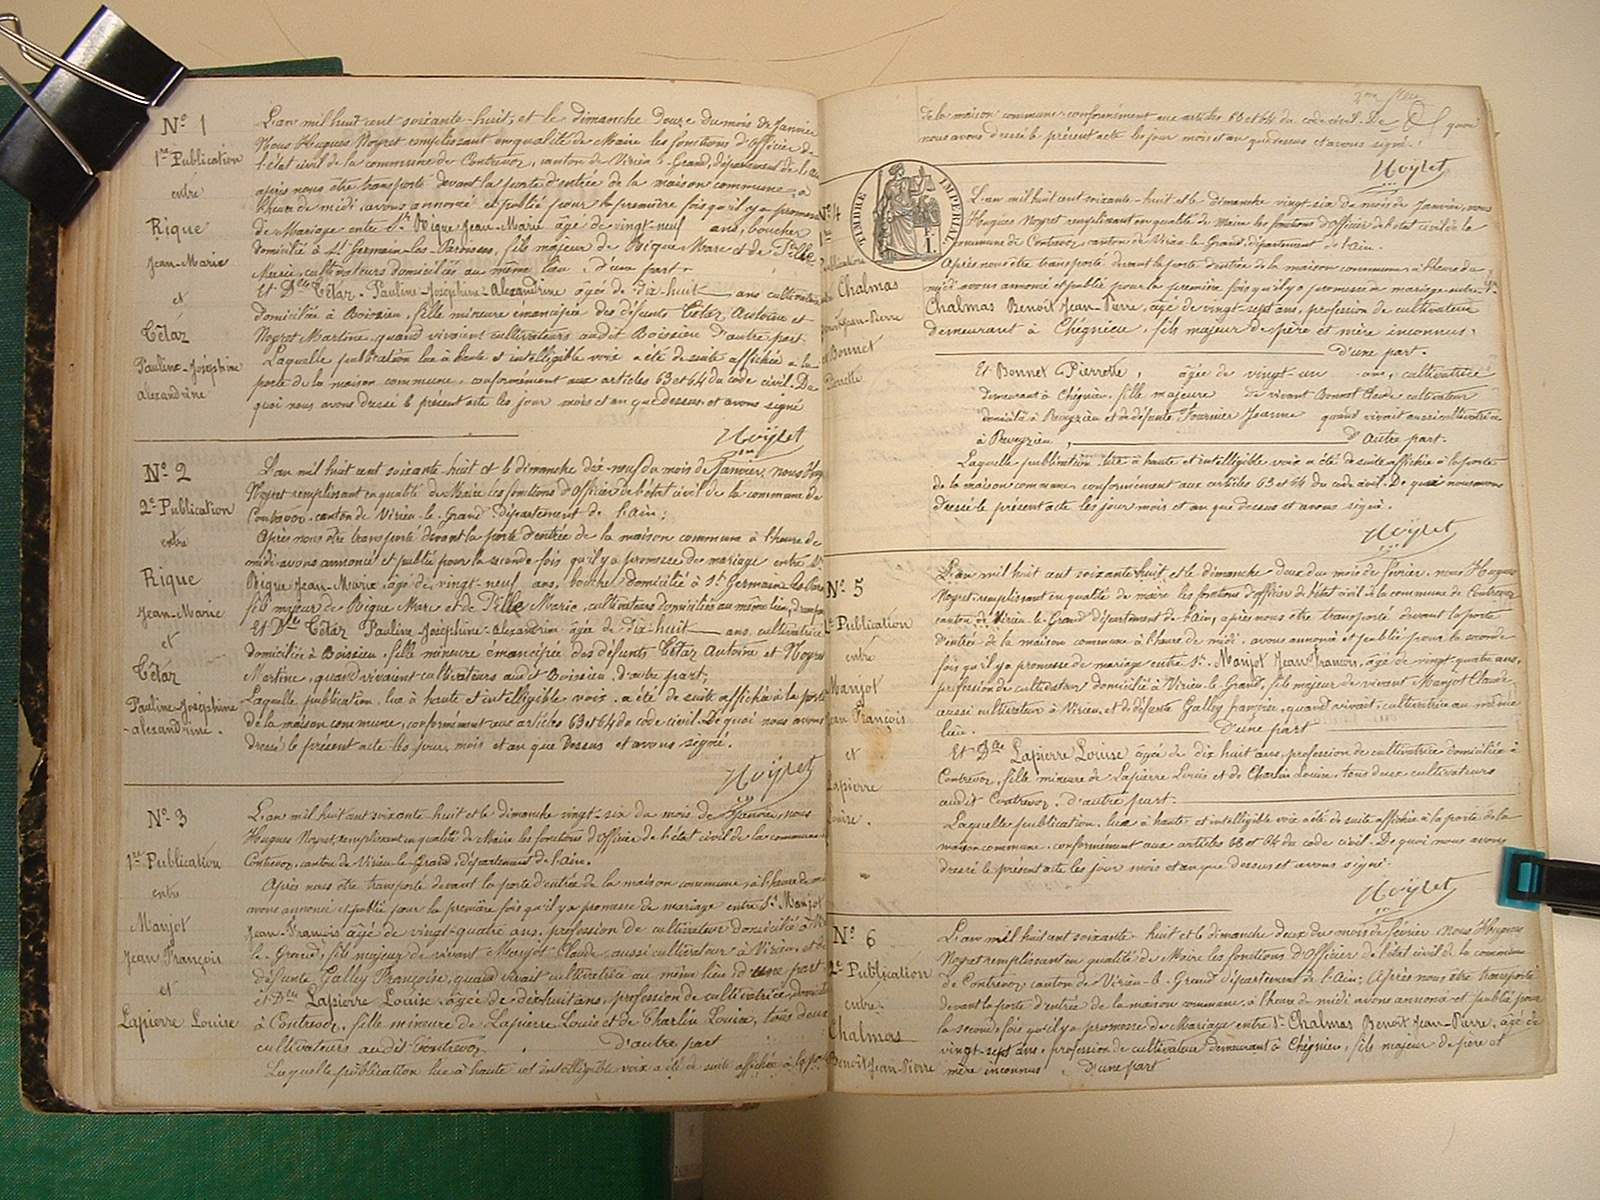 N° 1
1re Publication
entre
Rique
Jean-Marie
et
Tétaz
Pauline-Joséphine
alexandrine
L'an mil huit cent soixante-huit, et le dimanche douze du mois de Janvier
Nous Hugues Noyret remplissant en qualité de Maire les fonctions d'Officier de
l'état civil de la commune de Contrevoz, canton de Virieu-le-Grand, département de l'ain
après nous être transporté devant la porte d'entrée de la maison commune, à
l'heure de midi, avons annoncé et publié pour la première fois qu'il y a promesse
de Mariage entre Sr Rique Jean-Marie âgé de vingt-neuf ans, boucher
domicilié à St Germain-les-Paroisses, fils majeur de Rique Marc et de Pille
Marie, cultivateurs domiciliés au même lieu, d'une part.
Et Dlle Tétaz Pauline-Joséphine-Alexandrine âgée de dix-huit ans cultivatrice
domiciliée à Boissieu, fille mineure émancipée des défunts Tétaz Antoine et
Noyret Martine, quand vivaient cultivateurs audit Boissieu d'autre part.
Laquelle publication lue à haute et intelligible voix a été de suite affichée à la
porte de la maison commune, conformément aux articles 63 et 64 du code civil. De
quoi nous avons dressé le présent acte les jour mois et an que dessus et avons signé
Noyret
N° 2
2e Publication
entre
Rique
Jean-Marie
et
Tétaz
Pauline-Joséphine
-alexandrine.
L'an mil huit cent soixante-huit et le dimanche dix-neuf du mois de Janvier, nous Hug
Noyret remplissant en qualité de Maire les fonctions d'Officier de l'état civil de la commune de
Contrevoz, canton de Virieu-le-Grand Département de l'ain;
Après nous être transporté devant la porte d'entrée de la maison commune à l'heure de
midi avons annoncé et publié pour la seconde fois qu'il y a promesse de mariage entre Sr
Rique Jean-Marie âgé de vingt-neuf ans, boucher domicilié à St Germain-les-Paro
fils majeur de Rique Marc et de Pille Marie, cultivateurs domiciliés au même lieu, d'une part
Et Dlle Tétaz Pauline-Joséphine-alexandrine âgée de dix-huit ans cultivatrice
domiciliée à Boissieu, fille mineure émancipée des défunts Tétaz Antoine et Noyret
Martine, quand vivaient cultivateurs audit Boissieu, d'autre part,
Laquelle publication, lue à haute et intelligible voix a été de suite affichée à la porte
de la maison commune, conformément aux articles 63 et 64 du code civil. De quoi nous avons
dressé le présent acte les jour, mois et an que Dessus et avons signé.
Noyret
N° 3
1re Publication
entre
Manjot
Jean François
et
Lapierre Louise
L'an mil huit cent soixante-huit et le dimanche vingt-six du mois de Janvier, nous
Hugues Noyret, remplissant en qualité de Maire les fonctions d'Officier de l'état civil de la commune
Contrevoz, canton de Virieu-le-Grand, département de l'ain.
Après nous être transporté devant la porte d'entrée de la maison commune, à l'heure de
avons annoncé et publié pour la première fois qu'il y a promesse de mariage entre Sr Manjot
Jean-François âgé de vingt-quatre ans, profession de cultivateur domicilié à
le-Grand, fils majeur de vivant Manjot Claude, aussi cultivateur à Virieu, et de
défunte Galley Françoise, quand vivait cultivatrice au même lieu d'une part
et Dlle Lapierre Louise, âgée de dix-huit ans, profession de cultivatrice, domic
à Contrevoz, fille mineure de Lapierre Louis et de Charlin Louise, tous deux
cultivateurs audit Contrevoz, d'autre part
Laquelle publication lue à haute et intelligible voix a été de suite affichée à la
de la maison commune conformément aux articles 63 et 64 du code civil. De quoi
nous avons dressé le présent acte les jour mois et an que dessus et avons signé.
Noyret
TIMBRE IMPERIAL
1 F.
N° 4
Publication
Chalmas
Jean-Pierre
Bonnet
L'an mil huit cent soixante-huit et le dimanche vingt-six du mois de Janvier, nous
Hugues Noyret remplissant en qualité de Maire les fonctions d'Officier de l'état civil de la
commune de Contrevoz, canton de Virieu-le-Grand, département de l'ain.
Après nous être transporté devant la porte d'entrée de la maison commune à l'heure de
midi avons annoncé et publié pour la première fois qu'il y a promesse de mariage entre Sr
Chalmas Benoît Jean-Pierre, âgé de vingt-sept ans, profession de cultivateur
demeurant à Chégnieu, fils majeur de père et mère inconnus,
d'une part.
Et Bonnet Pierrette, âgée de vingt-un ans, cultivatrice
demeurant à Chégnieu, fille majeure de vivant Bonnet Claude cultivateur
domicilié à et de défunte Fournier Jeanne quand vivait aussi cultivatrice
à , d'Autre part.
Laquelle publication lue à haute et intelligible voix a été de suite affichée à la porte
de la maison commune conformément aux articles 63 et 64 du code civil. De quoi nous avons
Dressé le présent acte les jour mois et an que dessus et avons signé.
Noyret
N° 5
Publication
entre
Manjot
Jean François
et
Lapierre
Louise.
L'an mil huit cent soixante huit, et le dimanche deux du mois de février, nous Hugues
Noyret, remplissant en qualité de maire les fonctions d'officier de l'état civil de la commune de Contrevoz
canton de Virieu-le-Grand département de l'ain, après nous être transporté devant la porte
d'entrée de la maison commune à l'heure de midi, avons annoncé et publié pour la seconde
fois qu'il y a promesse de mariage entre Sr. Manjot Jean François, âgé de vingt-quatre ans,
profession de cultivateur domicilié à Virieu-le-Grand, fils majeur de vivant Manjot Claude,
aussi cultivateur à Virieu, et de défunte Galley françoise, quand vivait, cultivatrice au même
lieu. D'une part
Et Dlle Lapierre Louise âgée de dix huit ans, profession de cultivatrice domiciliée à
Contrevoz, fille mineure de Lapierre Louis et de Charlin Louise, tous deux cultivateurs
audit Contrevoz, d'autre part.
Laquelle publication, lue à haute et intelligible voix a été de suite affichée à la porte de la
maison commune, conformément aux articles 63 et 64 du code civil. De quoi nous avons
dressé le présent acte les jour mois et an que dessus et avons signé.
Noyret
N° 6
2e Publication
entre
Chalmas
Benoît Jean-Pierre
L'an mil huit cent soixante-huit et le dimanche deux du mois de février nous Hugues
Noyret remplissant en qualité de Maire les fonctions d'Officier de l'état civil de la commune
de Contrevoz canton de Virieu-le-Grand département de l'Ain; Après nous être transporté
devant la porte d'entrée de la maison commune, à l'heure de midi avons annoncé et publié pour
la seconde fois qu'il y a promesse de Mariage entre Sr Chalmas Benoît Jean-Pierre, âgé de
vingt-sept ans, profession de cultivateur demeurant à Chégnieu, fils majeur de père et
mère inconnus, d'une part